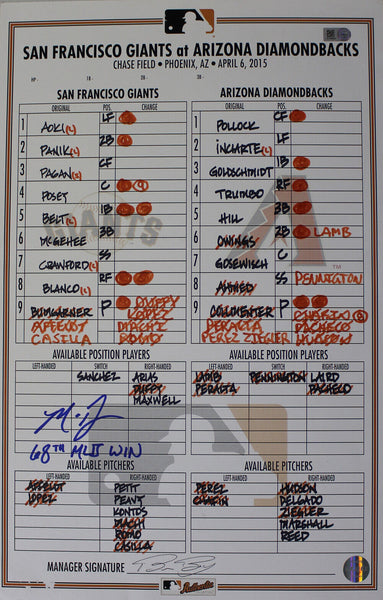 SAN FRANCISCO GIANTS at ARIZONA DIAMONDBACKS
CHASE FIELD • PHOENIX, AZ • APRIL 6, 2015
HP- 1B- 2B- 3B-
SAN FRANCISCO GIANTS ARIZONA DIAMONDBACKS
ORIGINAL POS. CHANGE ORIGINAL POS. CHANGE
1 AOKI(L) LF 1 POLLOCK CF
2 PANIK(L) 2B 2 INCIARTE(L) LF
3 PAGAN(S) CF 3 GOLDSCHMIDT 1B
4 POSEY C 4 TRUMBO RF
5 BELT(L) 1B 5 HILL 3B
6 McGEHEE 3B 6 OWINGS 2B LAMB
7 CRAWFORD(L) SS 7 GOSEWISCH C
8 BLANCO(L) RF 8 AHMED SS PENNINGTON
9 BUMGARNER P DUFFY 9 COLLMENTER P CHAFIN
LOPEZ PACHECO
AFFELDT MACHI PERALTA HUDSON
CASILLA ROMO PEREZ ZIEGLER
AVAILABLE POSITION PLAYERS AVAILABLE POSITION PLAYERS
LEFT-HANDED SWITCH RIGHT-HANDED LEFT-HANDED SWITCH RIGHT-HANDED
SANCHEZ ARIAS LAMB PENNINGTON LAIRD
DUFFY PERALTA PACHECO
MAXWELL
68TH MLB WIN
AVAILABLE PITCHERS AVAILABLE PITCHERS
LEFT-HANDED RIGHT-HANDED LEFT-HANDED RIGHT-HANDED
AFFELDT PETIT PEREZ HUDSON
LOPEZ PEAVY CHAFIN DELGADO
KONTOS ZIEGLER
MACHI MARSHALL
ROMO REED
CASILLA
MANAGER SIGNATURE
Authentic